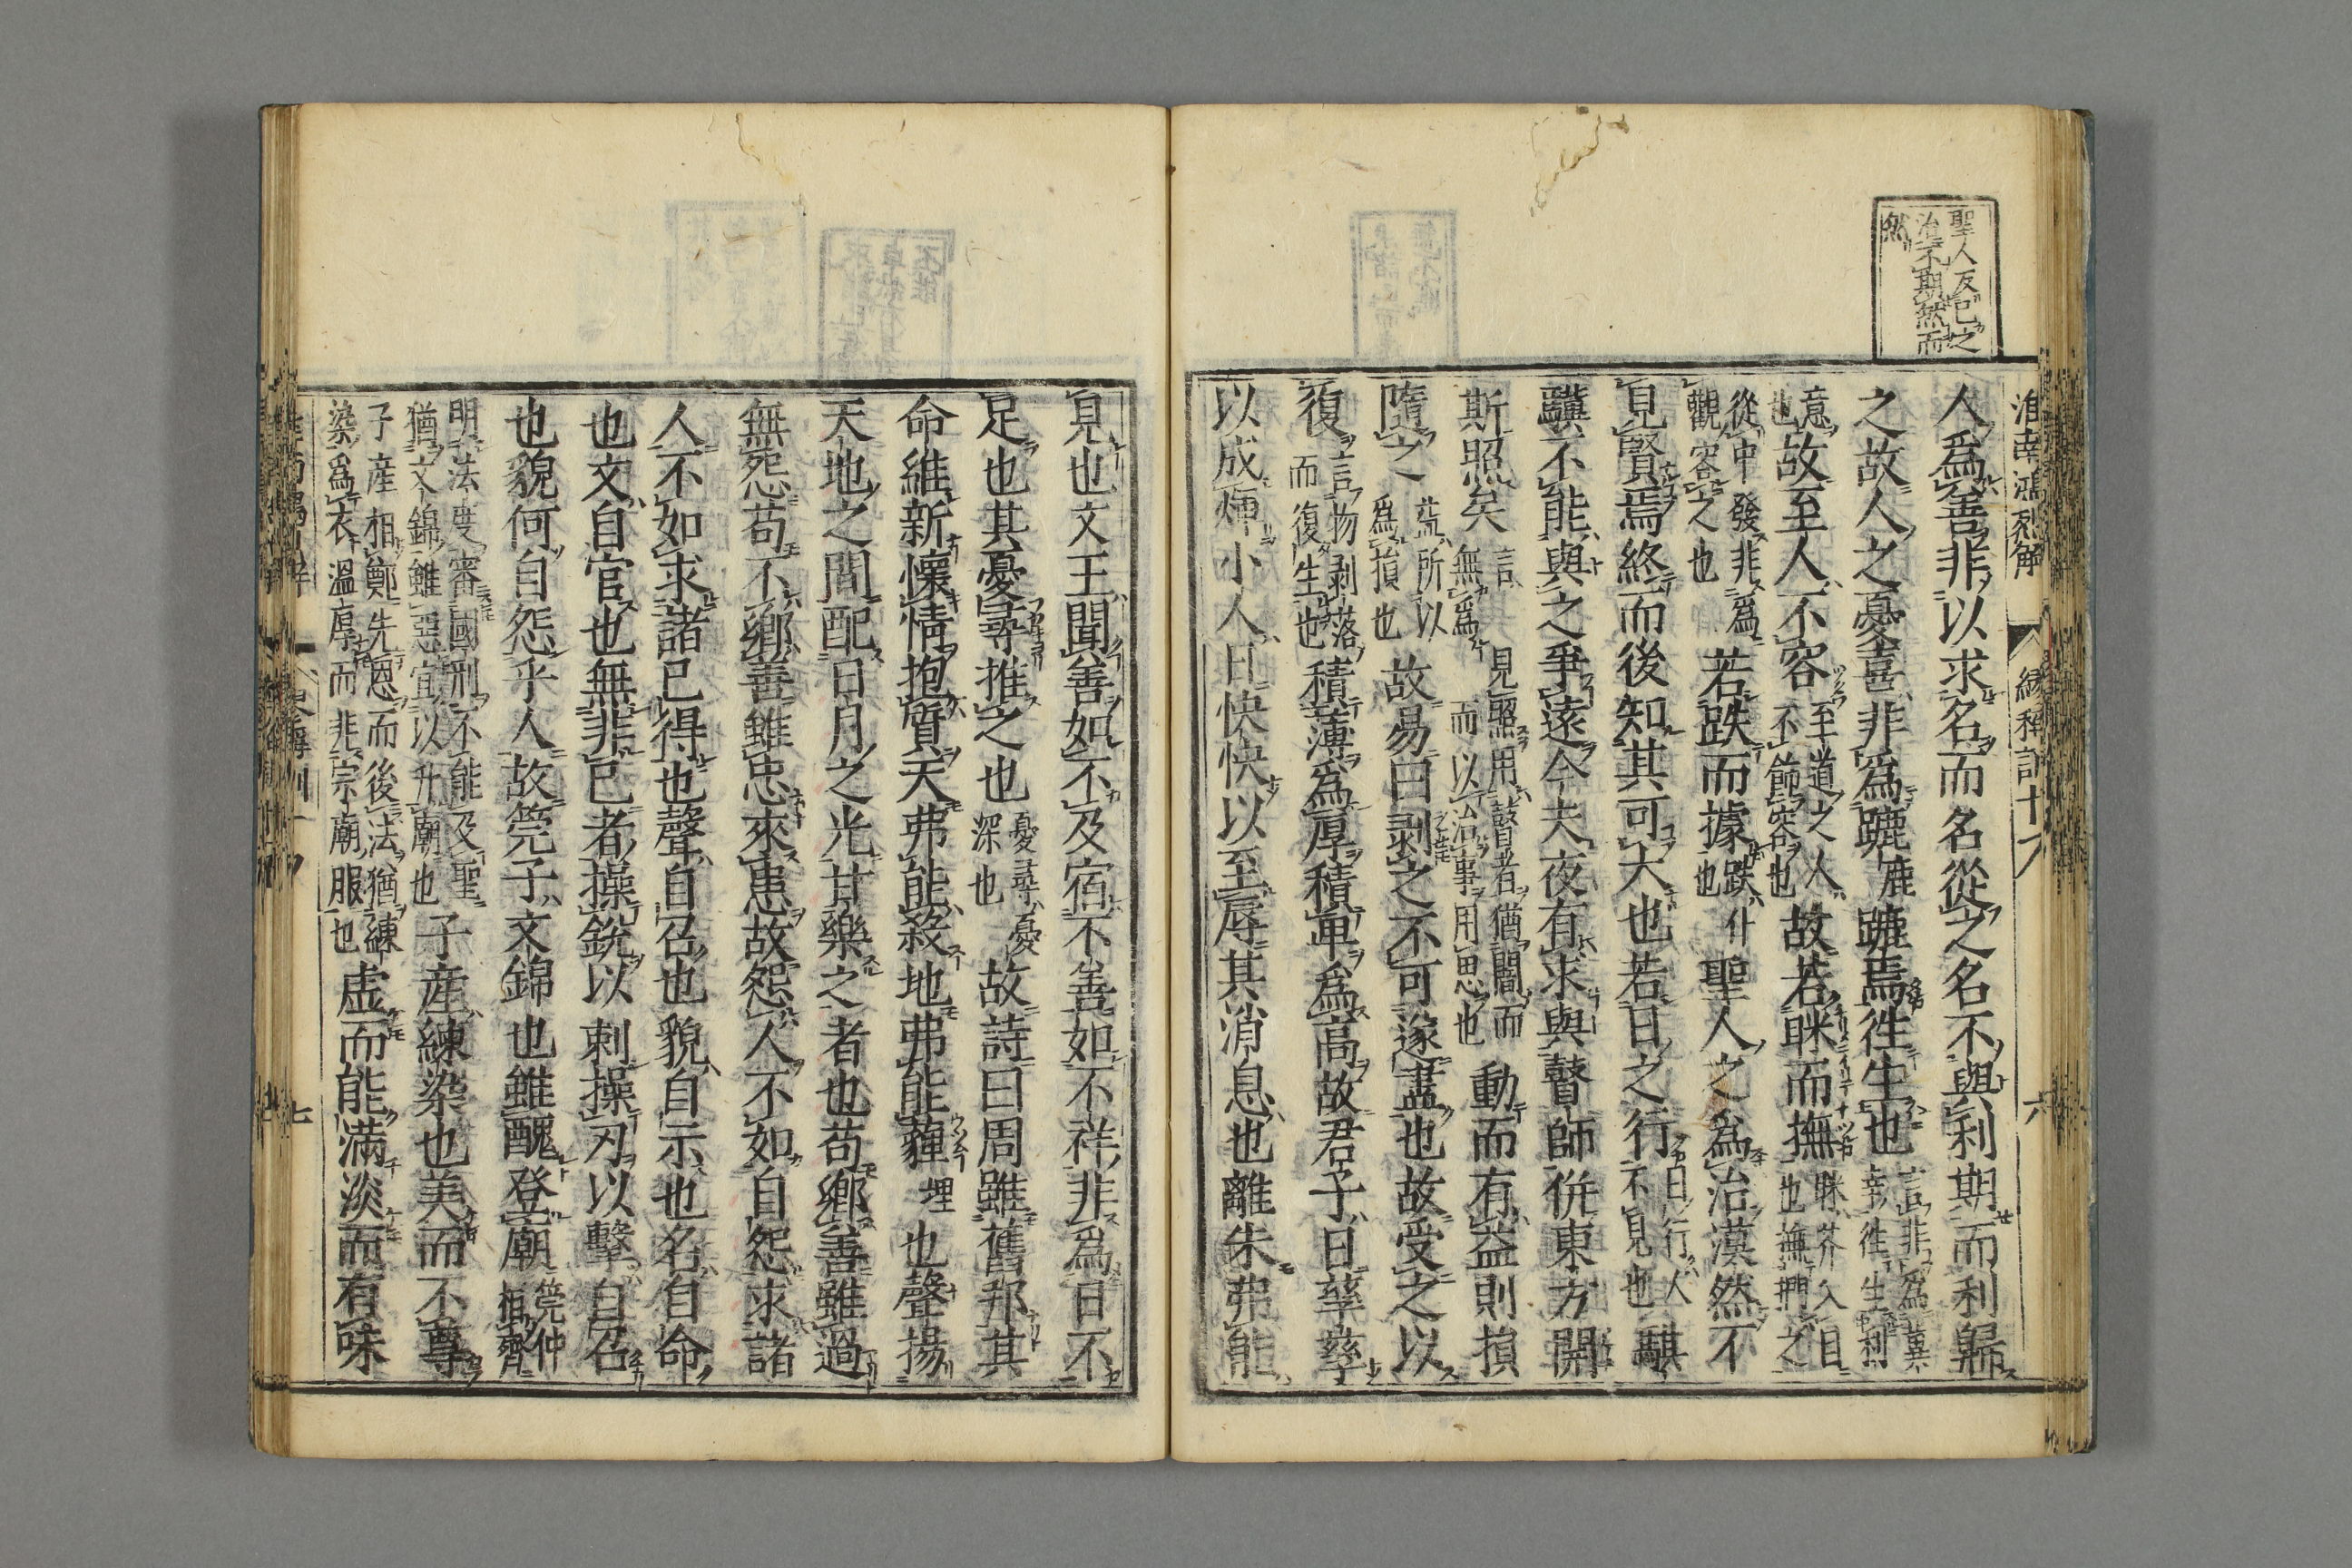 淮南鴻烈解
繆稱訓十
六
聖人反已之
治不期然而
然
人爲善非以求名而名從之名不與利期而利歸
之故人之憂喜非爲蹗鹿蹗焉往生也言非爲冀幸往生利
意也故至人不容至道之人不飾容也故若眯而撫眯芥入目也撫捫之
從中發非爲觀容之也若跌而據跌仆也聖人之爲治漠然不
見賢焉終而後知其可大也若日之行日行人不見也騏
驥不能與之爭遠今夫夜有求與瞽師併東方開
斯照矣言無爲見照用瞽者猶闇而而以治事用思也動而有益則損
隨之益所以爲損也故易曰剥之不可遂盡也故受之以
復言物剥落而復生也積薄爲厚積卑爲高故君子日孳孳
以成煇小人日怏怏以至辱其消息也離朱弗能
見也文王聞善如不及宿不善如不祥非爲日不
足也其憂尋推之也憂尋憂深也故詩曰周雖舊邦其
命維新懷情抱質天弗能殺地弗能薶埋也聲揚
天地之間配日月之光甘樂之者也苟郷善雖過
無怨苟不郷善雖忠來患故怨人不如自怨求諸
人不如求諸已得也聲自召也貌自示也名自命
也文自官也無非已者操銳以刺操刃以擊自召
也貌何自怨乎人故筦子文錦也雖醜登廟筦仲相齊
明法度審國刑不能及聖猶文錦雖惡宜以升廟也子産練染也美而不尊
子産相鄭先恩而後法猶練染爲衣温厚而非宗廟服也虚而能滿淡而有味
七